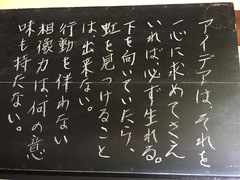 アイデアは、それを
一心に求めてさえ
いれば、必ず生れる。
下を向いていたら、
虹を見つけること
は、出来ない。
行動を伴わない
想像力は、何の意
味も持たない。